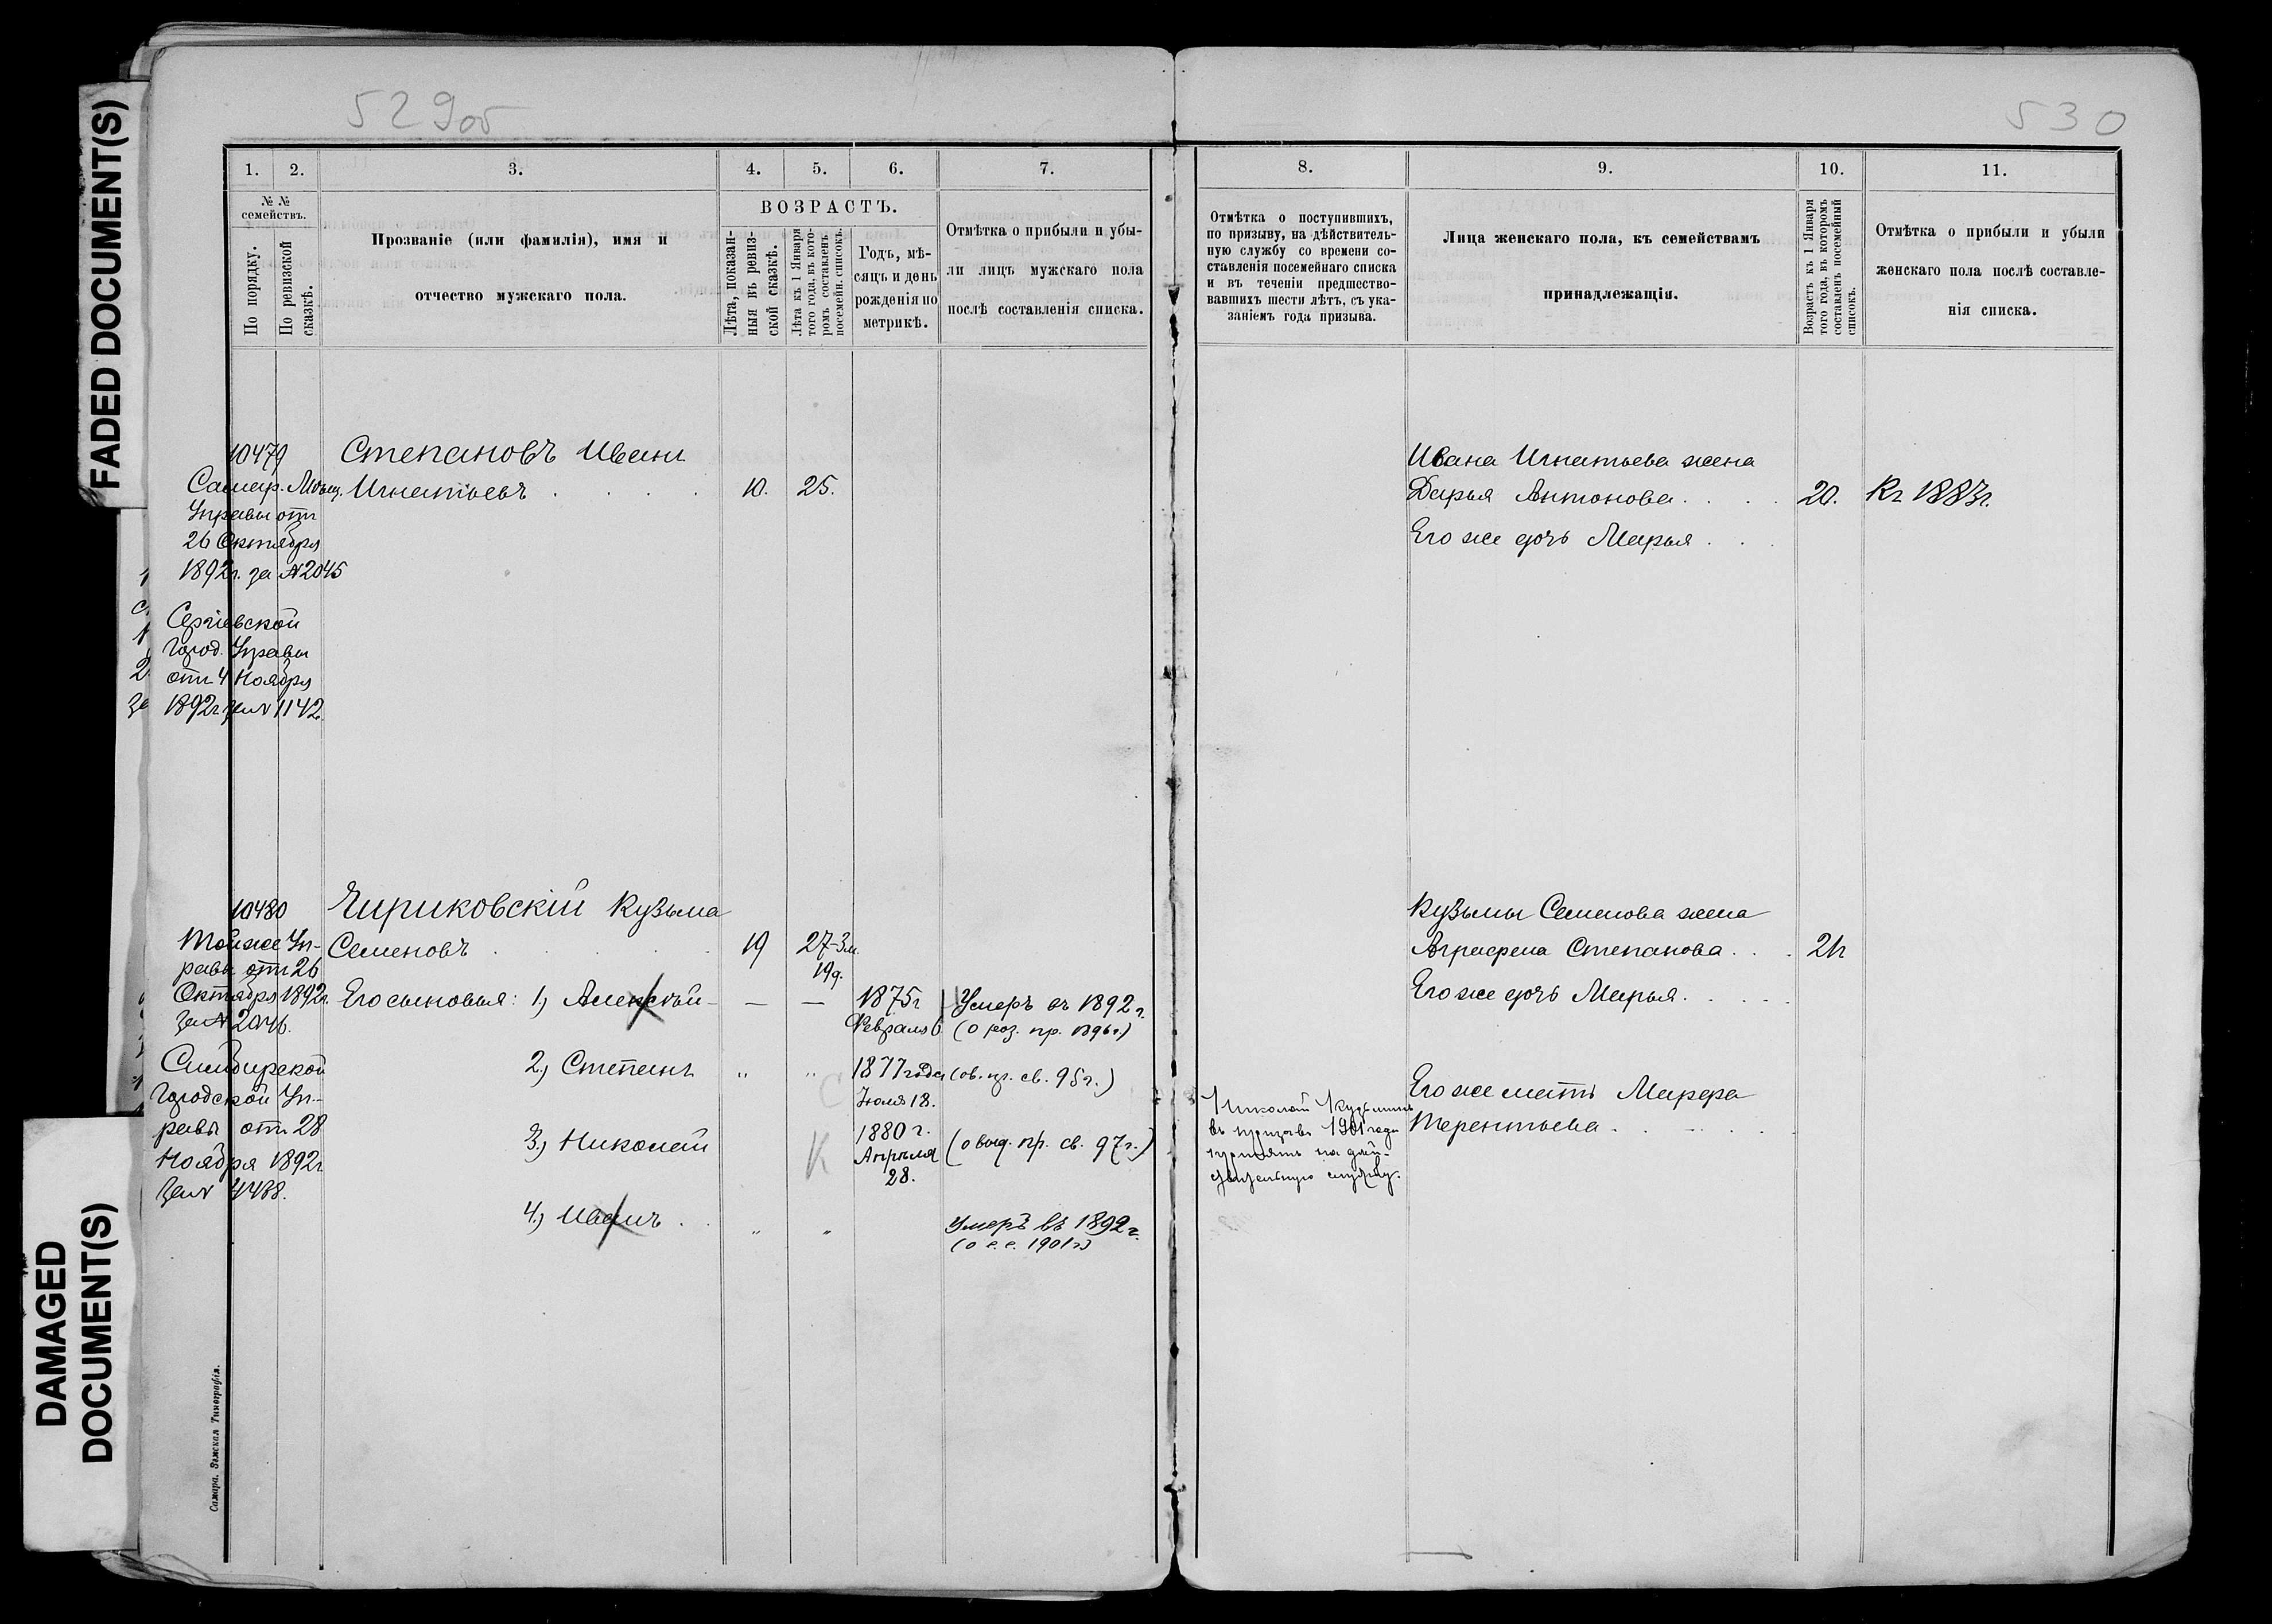 FADED DOCUMENT(S)
DAMAGED
DOCUMENT(S)
529об
530
1.
2.
3.
4.
5.
6.
7.
№ №
семействъ.
По порядку.
По ревизской
сказкѣ.
Прозваніе (или фамилія), имя и
отчество мужскаго пола.
ВОЗРАСТЪ.
Лѣта, показан-
ныя въ ревиз-
ской сказкѣ.
Лѣта къ 1 Января
того года, въ кото-
ромъ составленъ
посемейн. списокъ.
Годъ, мѣ-
сяцъ и день
рожденія по
метрикѣ.
Отмѣтка о прибыли и убы-
ли лицъ мужскаго пола
послѣ составленія списка.
10479
Степановъ Иванъ
Самар. Мѣщ.
Игнатьевъ
10.
25.
Управы отъ
26 Октября
1892г. за №2045
Сергіевской
Город. Управы
отъ 4 Ноября
1892г за № 1142
10480
Чириковскій Кузьма
Той же Уп-
Семеновъ
19
27-3м.
19д.
равы отъ 26
Октября 1892г.
за № 2046.
Его сыновья: 1, Алексѣй
— —
1875г
Февраля 6
Умеръ въ 1892г.
(о роз. пр. 1896г)
Симбирской
Городской Уп-
равы отъ 28
Ноября 1892г
за № 4488.
2, Степанъ
" "
1877 года
Іюля 18.
(ов. пр. св. 95г.)
3, Николай
К
1880 г.
Апрѣля
28.
(о выд. пр. св. 97г.)
4, Иванъ
" "
Умеръ въ 1892г.
(о с.с. 1901г)
Самара. Земская Типографія.
8.
9.
10.
11.
Отмѣтка о поступившихъ,
по призыву, на дѣйствитель-
ную службу со времени со-
ставленія посемейнаго списка
и въ теченіи предшество-
вавшихъ шести лѣтъ, съ ука-
заніемъ года призыва.
Лица женскаго пола, къ семействамъ
принадлежащія.
Возрастъ къ 1 Января
того года, въ которомъ
составленъ посемейный
списокъ.
Отмѣтка о прибыли и убыли
женскаго пола послѣ составле-
нія списка.
Ивана Игнатьева жена
Дарья Антонова
20.
Къ 1883г.
Его же дочь Марья
Кузьмы Семенова жена
Аграфена Степанова
Его же дочь Марья
Его же мать Марфа
Терентьева
Николай Кузьминъ
въ призывъ 1901 года
принятъ на дѣй-
ствительную службу.